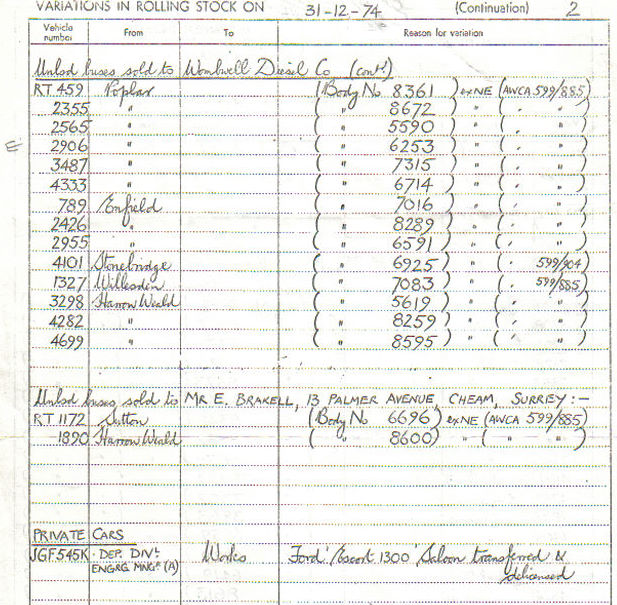 VARIATIONS IN ROLLING STOCK ON 31-12-74 (Continuation) 2
Vehicle number From To Reason for variation
Unlsd buses sold to Wombwell Diesel Co (cont'd)
RT 459 Poplar (Body No 8361) exNE (AWCA 599/885)
2355 " ( " 8672 ) " ( , " )
2565 " ( " 5590 ) " ( , " )
2906 " ( " 6253 ) " ( , " )
3487 " ( " 7315 ) " ( , " )
4333 " ( " 6714 ) " ( , " )
789 Enfield ( " 7016 ) " ( , " )
2426 " ( " 8289 ) " ( , " )
2955 " ( " 6591 ) " ( , " )
4101 Stonebridge ( " 6925 ) " ( , 599/904 )
1327 Willesden ( " 7083 ) " ( , 599/885 )
3298 Harrow Weald ( " 5619 ) " ( , " )
4282 " ( " 8259 ) " ( , " )
4699 " ( " 8595 ) " ( , " )
Unlsd buses sold to MR E. BRAKELL, 13 PALMER AVENUE, CHEAM, SURREY:-
RT 1172 Sutton (Body No 6696) exNE (AWCA 599/885)
1890 Harrow Weald ( " 8600) " ( " " )
PRIVATE CARS
JGF545K DEP. DIVL Works Ford 'Escort 1300' Saloon transferred &
ENGRG MNGR (A) delicensed